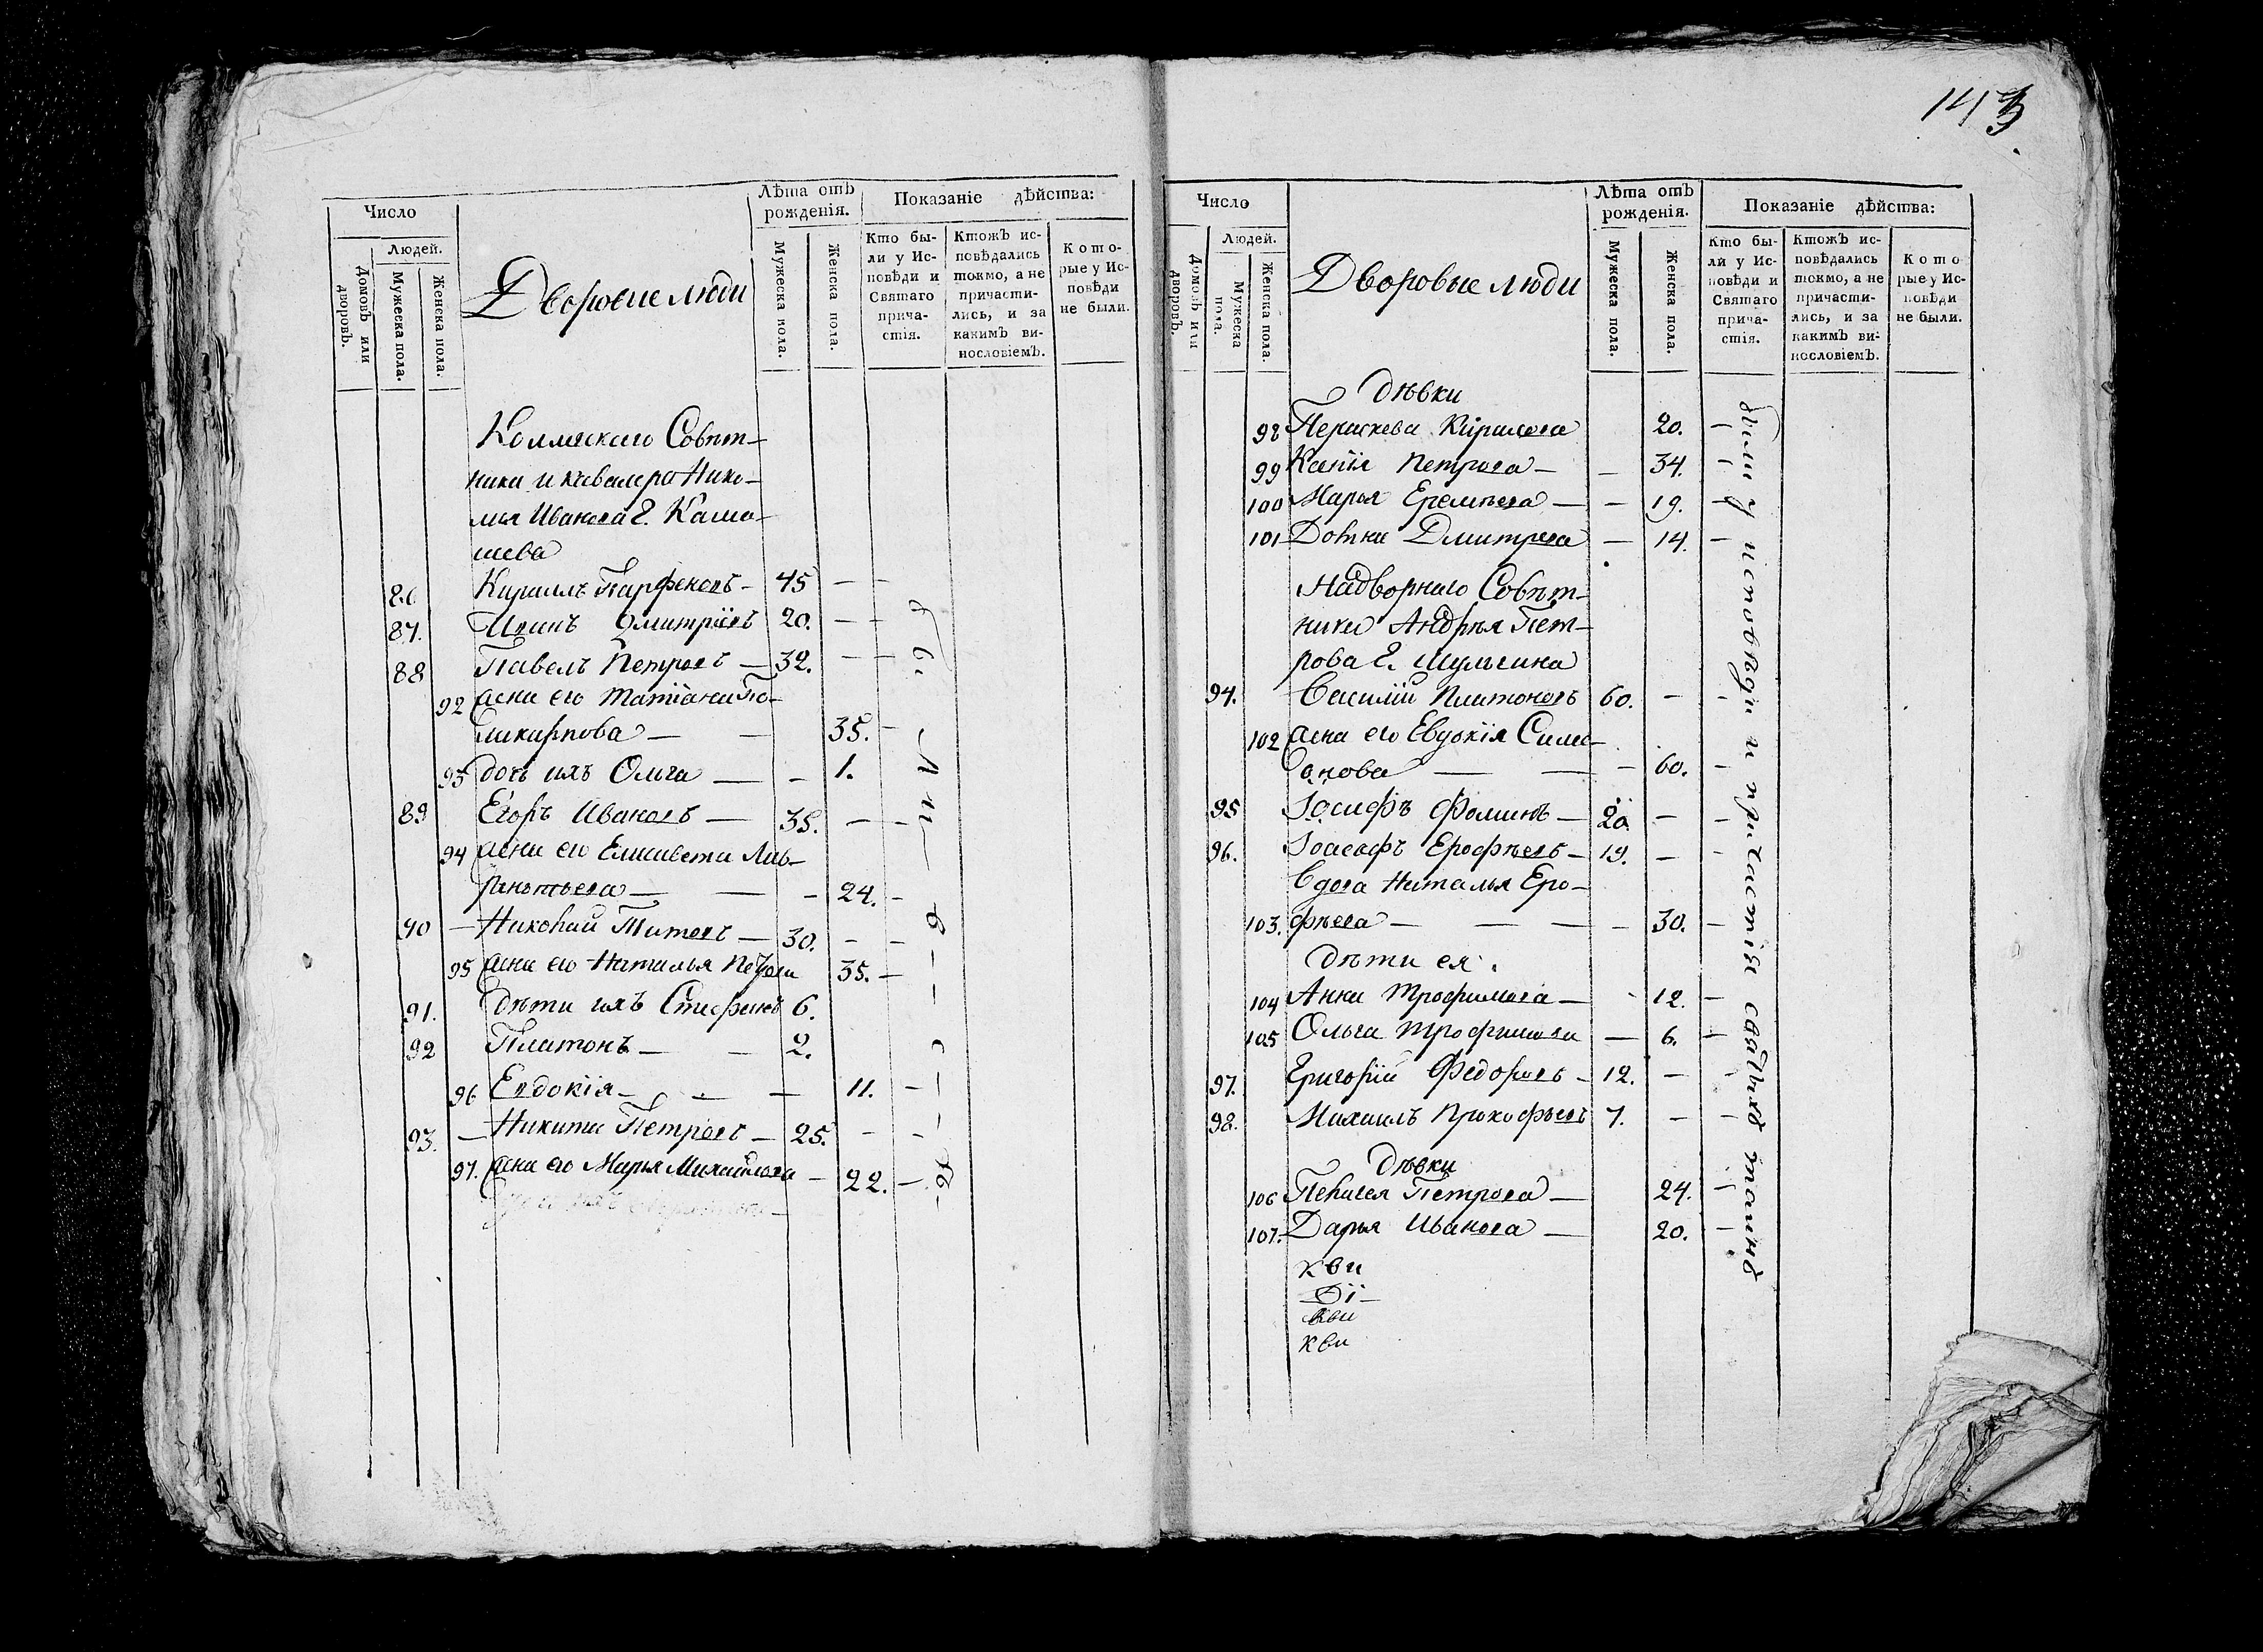 143
Число
Людей.
Домовъ или дворовъ.
Мужеска пола.
Женска пола.
Дворовые люди
Лѣта отъ рожденія.
Мужеска пола.
Женска пола.
Показаніе дѣйства:
Кто были у Исповѣди и Святаго причастія.
Ктожъ исповѣдались токмо, а не причастились, и за какимъ винословіемъ.
Которые у Исповѣди не были.
Колежскаго Совѣт-
ника и кавалера Нико-
лая Иванова Г.
шева
86 Кирилъ Парфеновъ - 45 — —
87. Дмитріевъ 20. — —
88 Павелъ Петровъ — 32. — —
92 жена его Татіана По-
ликарпова — — 35. —
93 дочь ихъ Ольга — — 1.
89 Егоръ Ивановъ — 35. — —
94 жена его Елисавета Лав-
рентьева — — — 24. —
90 — Николай Титовъ — 30. — —
95 жена его Наталья Петрова 35. —
91. дѣти ихъ Стефанъ 6.
92 Платонъ — — 2.
96 Евдокія — — — 11. —
93. — Никита Петровъ — 25. — —
97. жена его Марья Михайлова — 22. —
Число
Людей.
Домовъ или дворовъ.
Мужеска пола.
Женска пола.
Дворовые люди
Лѣта отъ рожденія.
Мужеска пола.
Женска пола.
Показаніе дѣйства:
Кто были у Исповѣди и Святаго причастія.
Ктожъ исповѣдались токмо, а не причастились, и за какимъ винословіемъ.
Которые у Исповѣди не были.
дѣвки
98 Параскева Кирилова 20. —
99 Петрова — — 34. —
100 Марья Еремѣева — — 19. —
101 Дмитрева — 14. —
Надворнаго Совѣт-
ника Андрея Пет-
рова Г. Шульгина
94. Василій Платоновъ 60. — —
102 жена его Евдокія Симе-
онова — — — 60. —
95 Іосифъ Фоминъ — 20. — —
96. Іоасафъ Ерофѣевъ — 19. — —
Вдова Наталья Еро-
103. фѣева — — — — 30. —
дѣти ея.
104 Анна Трофимова — - 12. —
105 Ольга Трофимова — 6. —
97. Григорій Федоровъ - 12. — —
98. Михаилъ Прокофьевъ 7. — —
дѣвки
106 Пелагея Петрова — 24. —
107. Дарья Иванова — 20. —
кви
кви
кви
были у исповѣди и причастія святыхъ таинъ